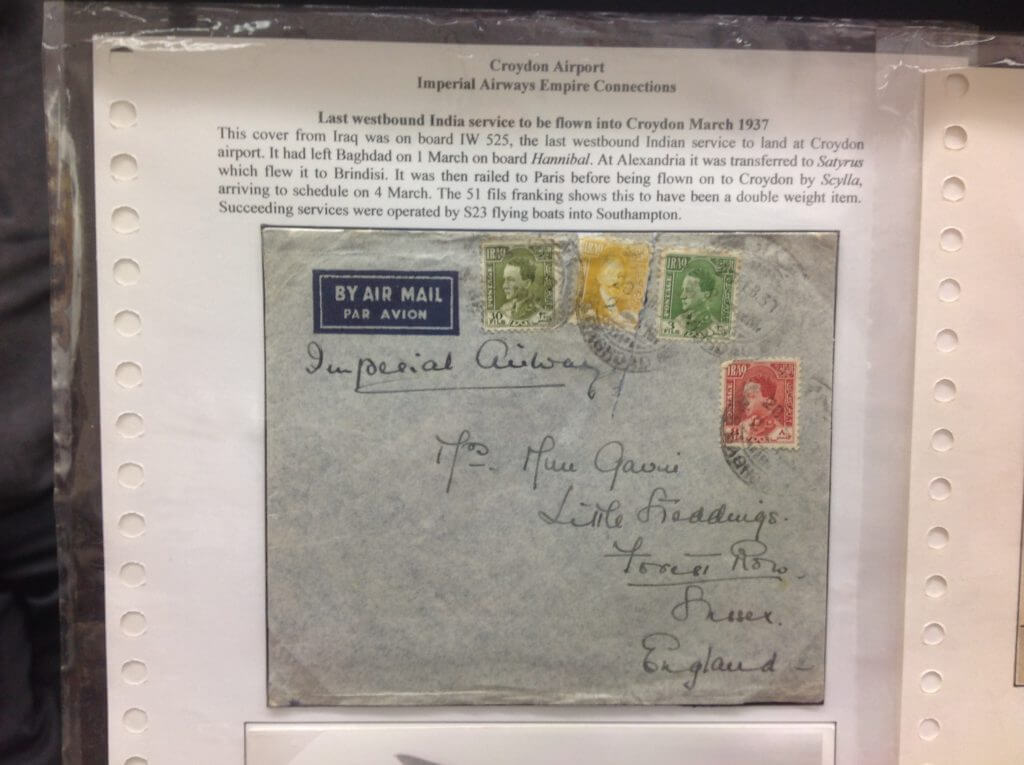 Croydon Airport
Imperial Airways Empire Connections
Last westbound India service to be flown into Croydon March 1937
This cover from Iraq was on board IW 525, the last westbound Indian service to land at Croydon
airport. It had left Baghdad on 1 March on board Hannibal. At Alexandria it was transferred to Satyrus
which flew it to Brindisi. It was then railed to Paris before being flown on to Croydon by Scylla,
arriving to schedule on 4 March. The 51 fils franking shows this to have been a double weight item.
Succeeding services were operated by S23 flying boats into Southampton.
IRAQ
POSTAGE
IRAQ
IRAQ
POSTAGE
BY AIR MAIL
PAR AVION
Imperial Airways
IRAQ
POSTAGE
Mrs.
Little Steddings.
Forest Row.
Sussex.
England